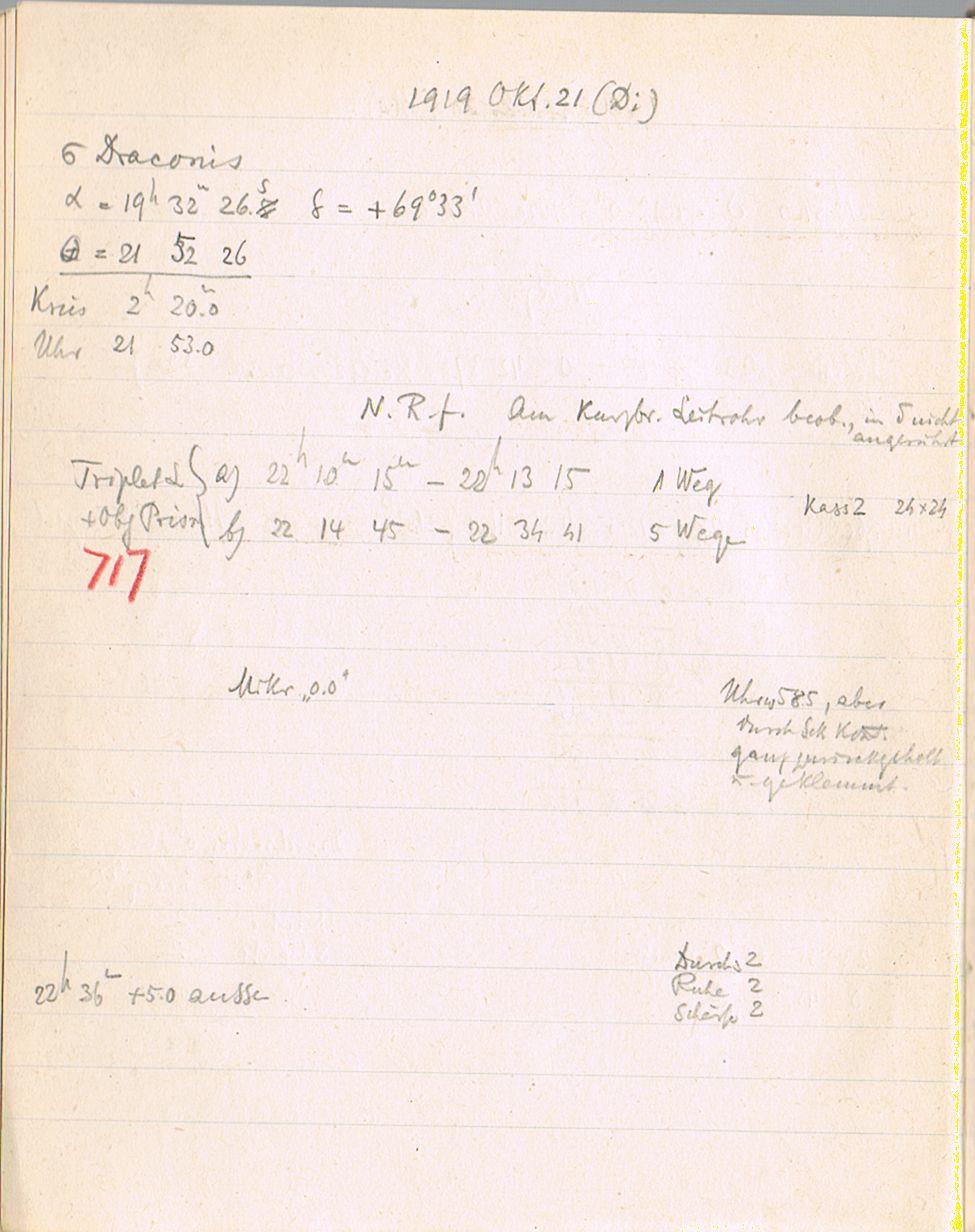 1919 Okt. 21 (Di)
σ Draconis
α = 19h 32m 26.s δ = +69°33'
θ = 21 52 26
Kreis 2h 20.m0
Uhr 21 53.0
N. R. f. Am Kurzbr. Leitrohr beob., in δ nicht
angerührt
Triplet L } a) 22h 10m 15 – 22h 13 15 1 Weg
+ Obj Prism } b) 22 14 45 – 22 34 41 5 Wege
Kass 2 24×24
717
Mikr „0.0"
Uhrw 585, aber
durch Sek Kont.
ganz zurückgeholt
u. geklemmt.
22h 36m +5.0 aussen
Durchs 2
Ruhe 2
Schärfe 2